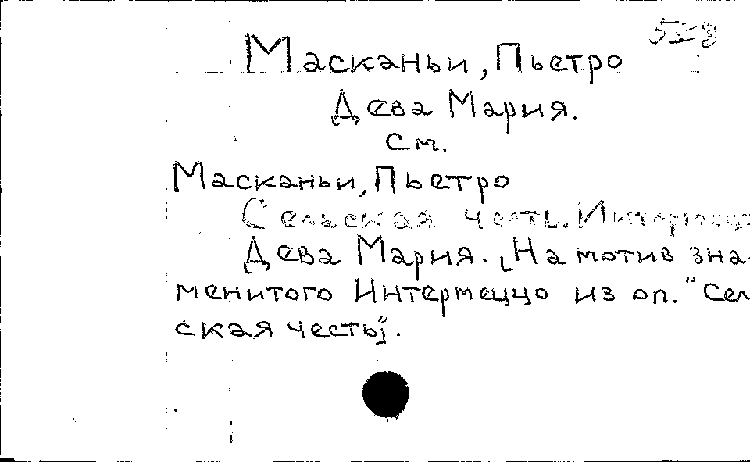 Масканьи, Пьетро
Дева Мария.
см.
Масканьи, Пьетро
Сельская честь. Интермеццо
Дева Мария. [На мотив зна-
менитого Интермеццо из оп. "Сель
ская честь"].